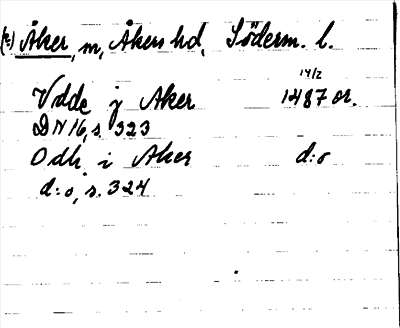 (2) Åker, m, Åkers hd, Söderm. l.
14/2
Vdde j Aker 1487 or.
DN 16, s. 323
Odh i Aker d:o
d:o, s. 324